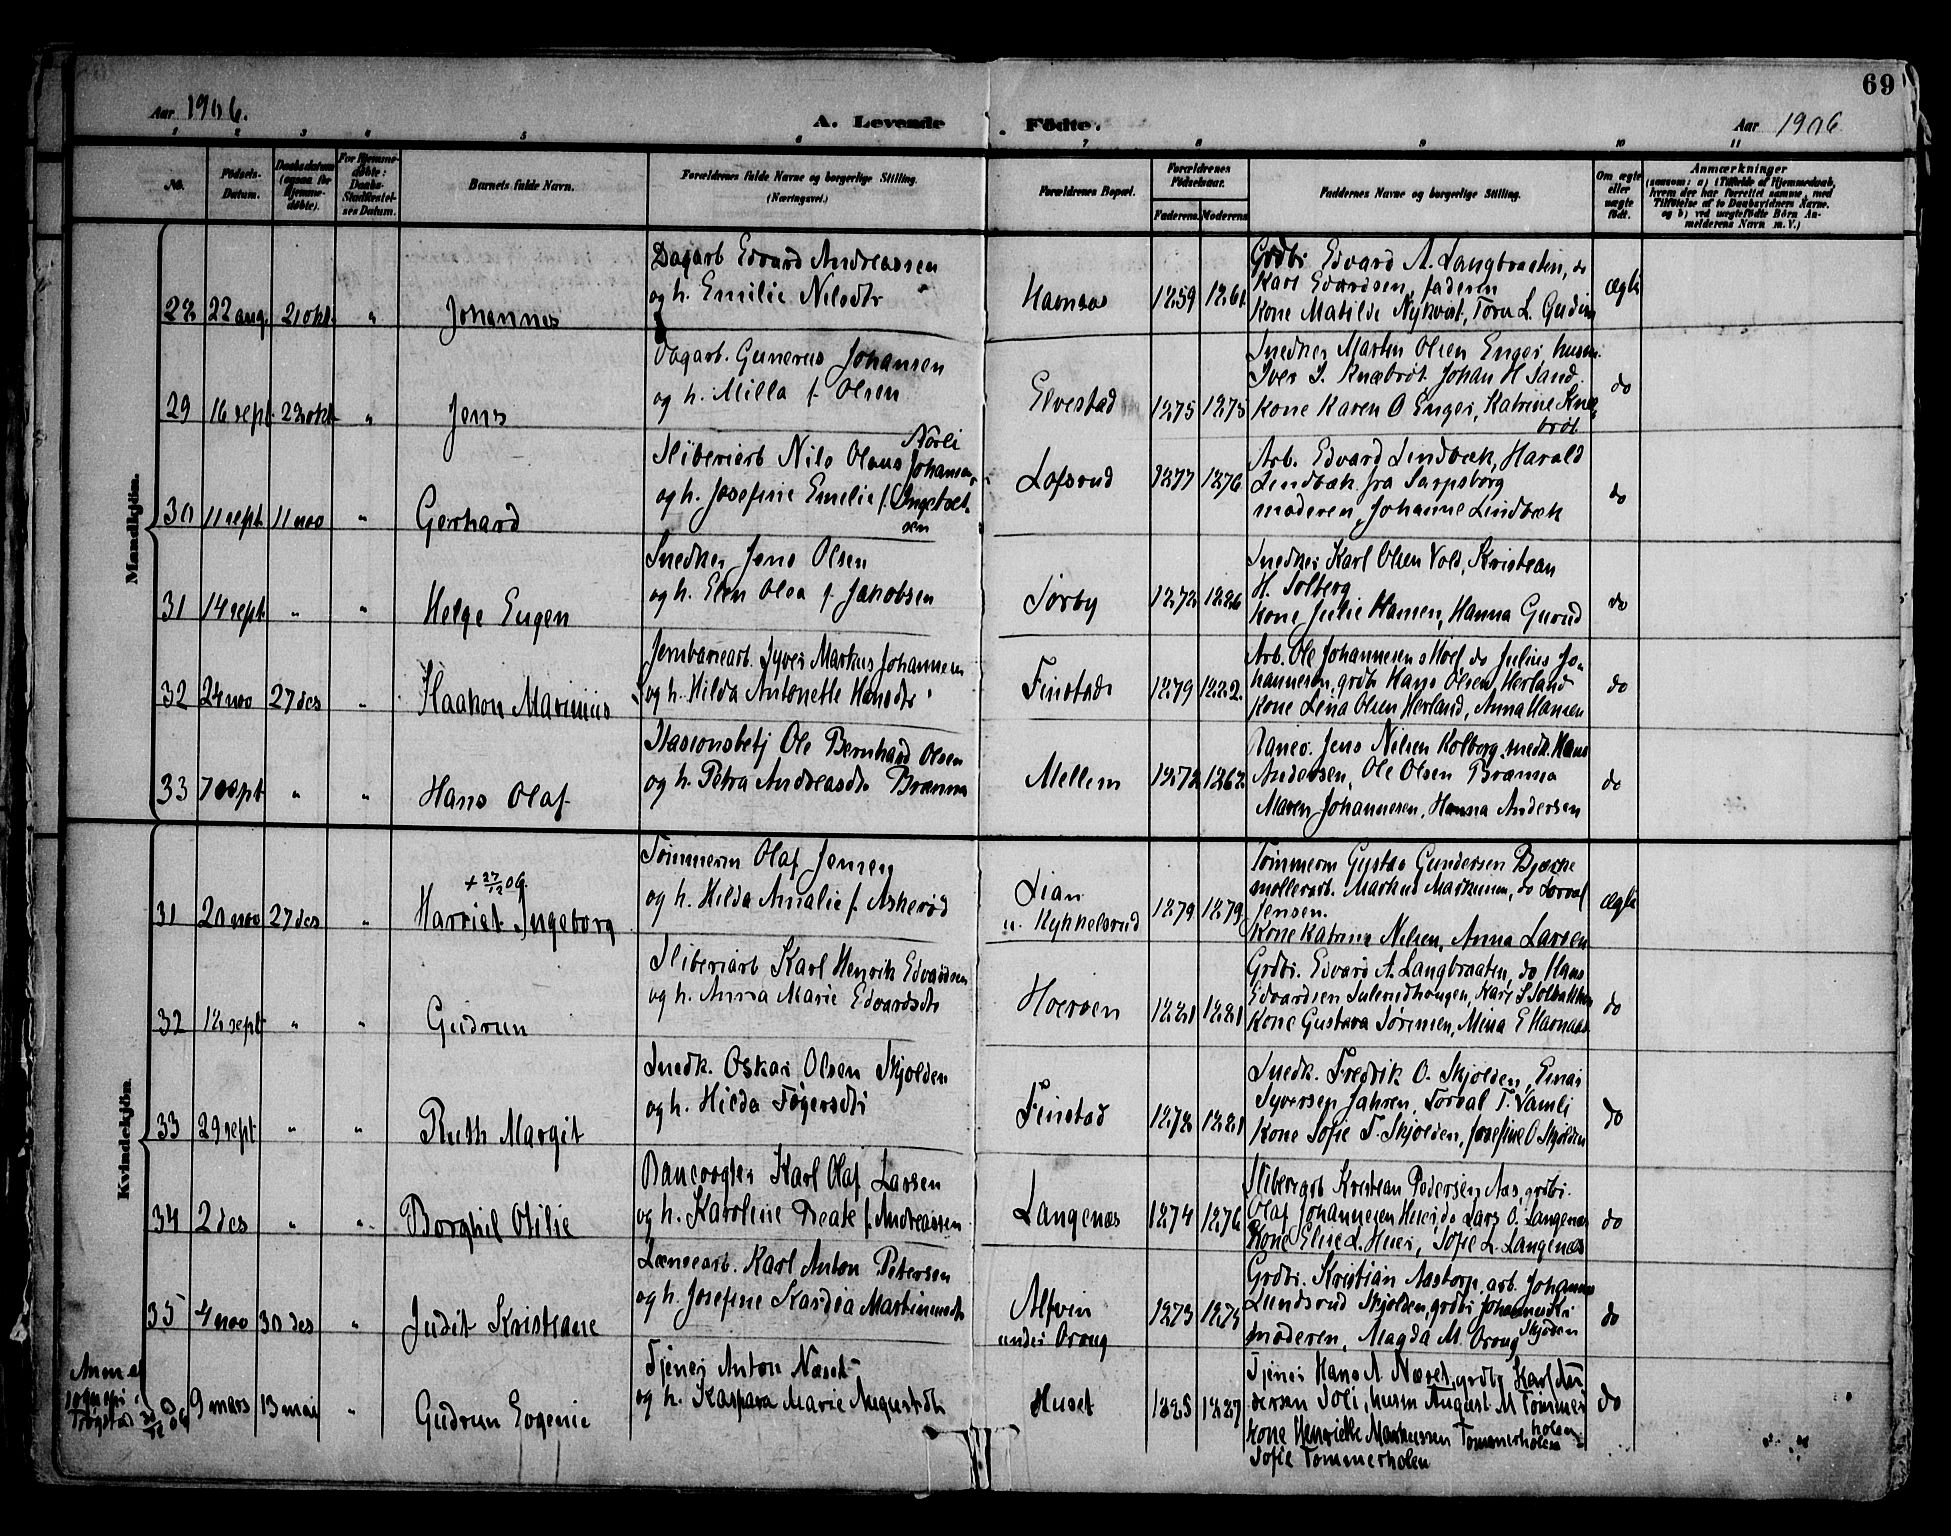 69
Aar 1906.
A. Levende Fødte.
Aar 1906
1 2 3 4 5 6 7 8 9 10 11
No.
Fødsels-
Datum.
Daabsdatum
(ogsaa for
Hjemme-
døbte).
For Hjemme-
døbte:
Daabs-
Stadfæstel-
ses Datum.
Barnets fulde Navn.
Forældrenes fulde Navne og borgerlige Stilling.
(Næringsvei.)
Forældrenes Bopæl.
Forældrenes
Fødselsaar.
Faderens. Moderens
Faddernes Navne og borgerlige Stilling.
Om ægte
eller
uægte
født.
Anmærkninger
(saasom: a) i Tilfælde af Hjemmedaab,
hvem der har forrettet samme, med
Tilføielse af to Daabsvidners Navne,
og b) ved uægtefødte Børn An-
melderens Navn m. V.)
Mandkjön.
28 22 aug. 21 okt. " Johannes
Dagarb Edvard Andreassen
og h. Emilie Nilsdtr
Havnaas 1859 1861
Grdbr Edvard A. Langbraaten, do
Karl Edvardsen, faderen
Kone Matilde Nykvist, Tora L. Gudim
ægte
29 16 sept 28 okt " Jens
Dagarb. Gunerus Johansen
og h. Milla f. Olsen
Elvestad 1875 1875
Snedker Martin Olsen Enger, husm.
Iver J. Knæbrøt, Johan H Sand
Kone Karen O Enger, Katrine Knæ-
brøt
do
30 11 sept 11 nov " Gerhard
Sliberiarb Nils Olaus Johansen
Nørli
og h. Josefine Emilie f. Ingebret-
sen
Løfsrud 1877 1876
Arb. Edvard Lindbæk, Harald
Lindbæk fra Sarpsborg
moderen, Johanne Lindbæk
do
31 14 sept " " Helge Eugen
Snedker Jens Olsen
og h. Elen Olea f. Jakobsen
Sørby 1872 1886
Snedker Karl Olsen Vold, Kristian
H. Solberg
Kone Julie Hansen, Hanna Gurud
do
32 24 nov 27 des " Haakon Marinius
Jernbanearb. Syver Markus Johannesen
og h. Hilda Antonette Hansdtr
Finstad 1879 1882
Arb. Ole Johannesen Moel, do Julius Jo-
hannesen, grdb Hans Olsen Herland
Kone Lena Olsen Herland, Anna Hansen
do
33 7 sept " " Hans Olaf
Stasionsbetj Ole Bernhard Olsen
og h. Petra Andreasdtr Brænna
Mellem 1872 1862
Jens Nilsen Kolborg, snedk. Hans
Andersen, Ole Olsen Brænna
Maren Johannesen, Hanna Andersen
do
Kvindekjön.
31 20 nov 27 des " Harriet Ingeborg
+ 27/12 06.
Tømmerm Olaf Jensen
og h. Hilda Amalie f. Askerød
Lian
u. Kykkelsrud 1879 1879
Tømmerm Gustav Gundersen Bjærke
møllerarb. Markus Markussen, do Torval
Jensen.
Kone Katrine Nilsen, Anna Larsen
ægte
32 12 sept " " Gudrun
Sliberiarb Karl Henrik Edvardsen
og h. Anna Marie Edvardsdtr
1881 1881
Grdbr. Edvard A. Langbraaten, do Hans
Edvardsen Sulerudhaugen, Karl S Solbakken
Kone Gustava Sørensen, Mina E Havnaas
do
33 29 sept " " Ruth Margit
Snedk. Oskar Olsen Skjolden
og h. Hilda Tøgersdtr
Finstad 1878 1881
Snedk. Fredrik O. Skjolden, Einar
Syversen Jahren, Torval T. Vamli
Kone Sofie T. Skjolden, Josefine O Skjolden
do
34 2 des " " Borghil Otilie
Banevogter Karl Olaf Larsen
og h. Karoline Beate f. Andreassen
Langenæs 1874 1876
Sliberiarb Kristian Pedersen Aas, grdbr.
Olaf Johannesen Heier, do Lars O. Langenæs
Kone Elise L. Heier, Sofie L. Langenæs
do
35 4 nov 30 des " Judit Kristiane
Lænsearb. Karl Anton Petersen
og h. Josefine Kardia Martinusdtr
Alfvin
under Oraug 1873 1875
Grdbr. Kristian Aastorp, arb. Johannes
Lundsrud Skjolden, grdbr Johannes
Skjolden
moderen, Magda M. Oraug
do
Anm af
sogn. pr i
Trøgstad 9 mars 13 mai " Gudrun Eogenie
Tjener Anton Næset
og h. Kaspara Marie Augustsdtr
Huset 1885 1887
Tjener Hans A Næset, grdbr Karl An-
dersen Soli, husm August M Tømmer
holen
Kone Henriette Markussen Tømmerholen
Sofie Tømmerholen
do